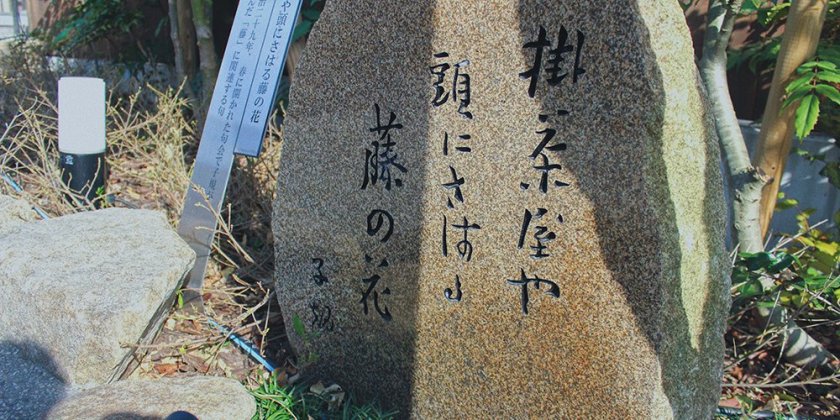 掛茶屋や
頭にさはる
藤の花
子規
や頭にさはる藤の花
二十九年、春に開かれた句会で子規
んだ「藤」に関連する句